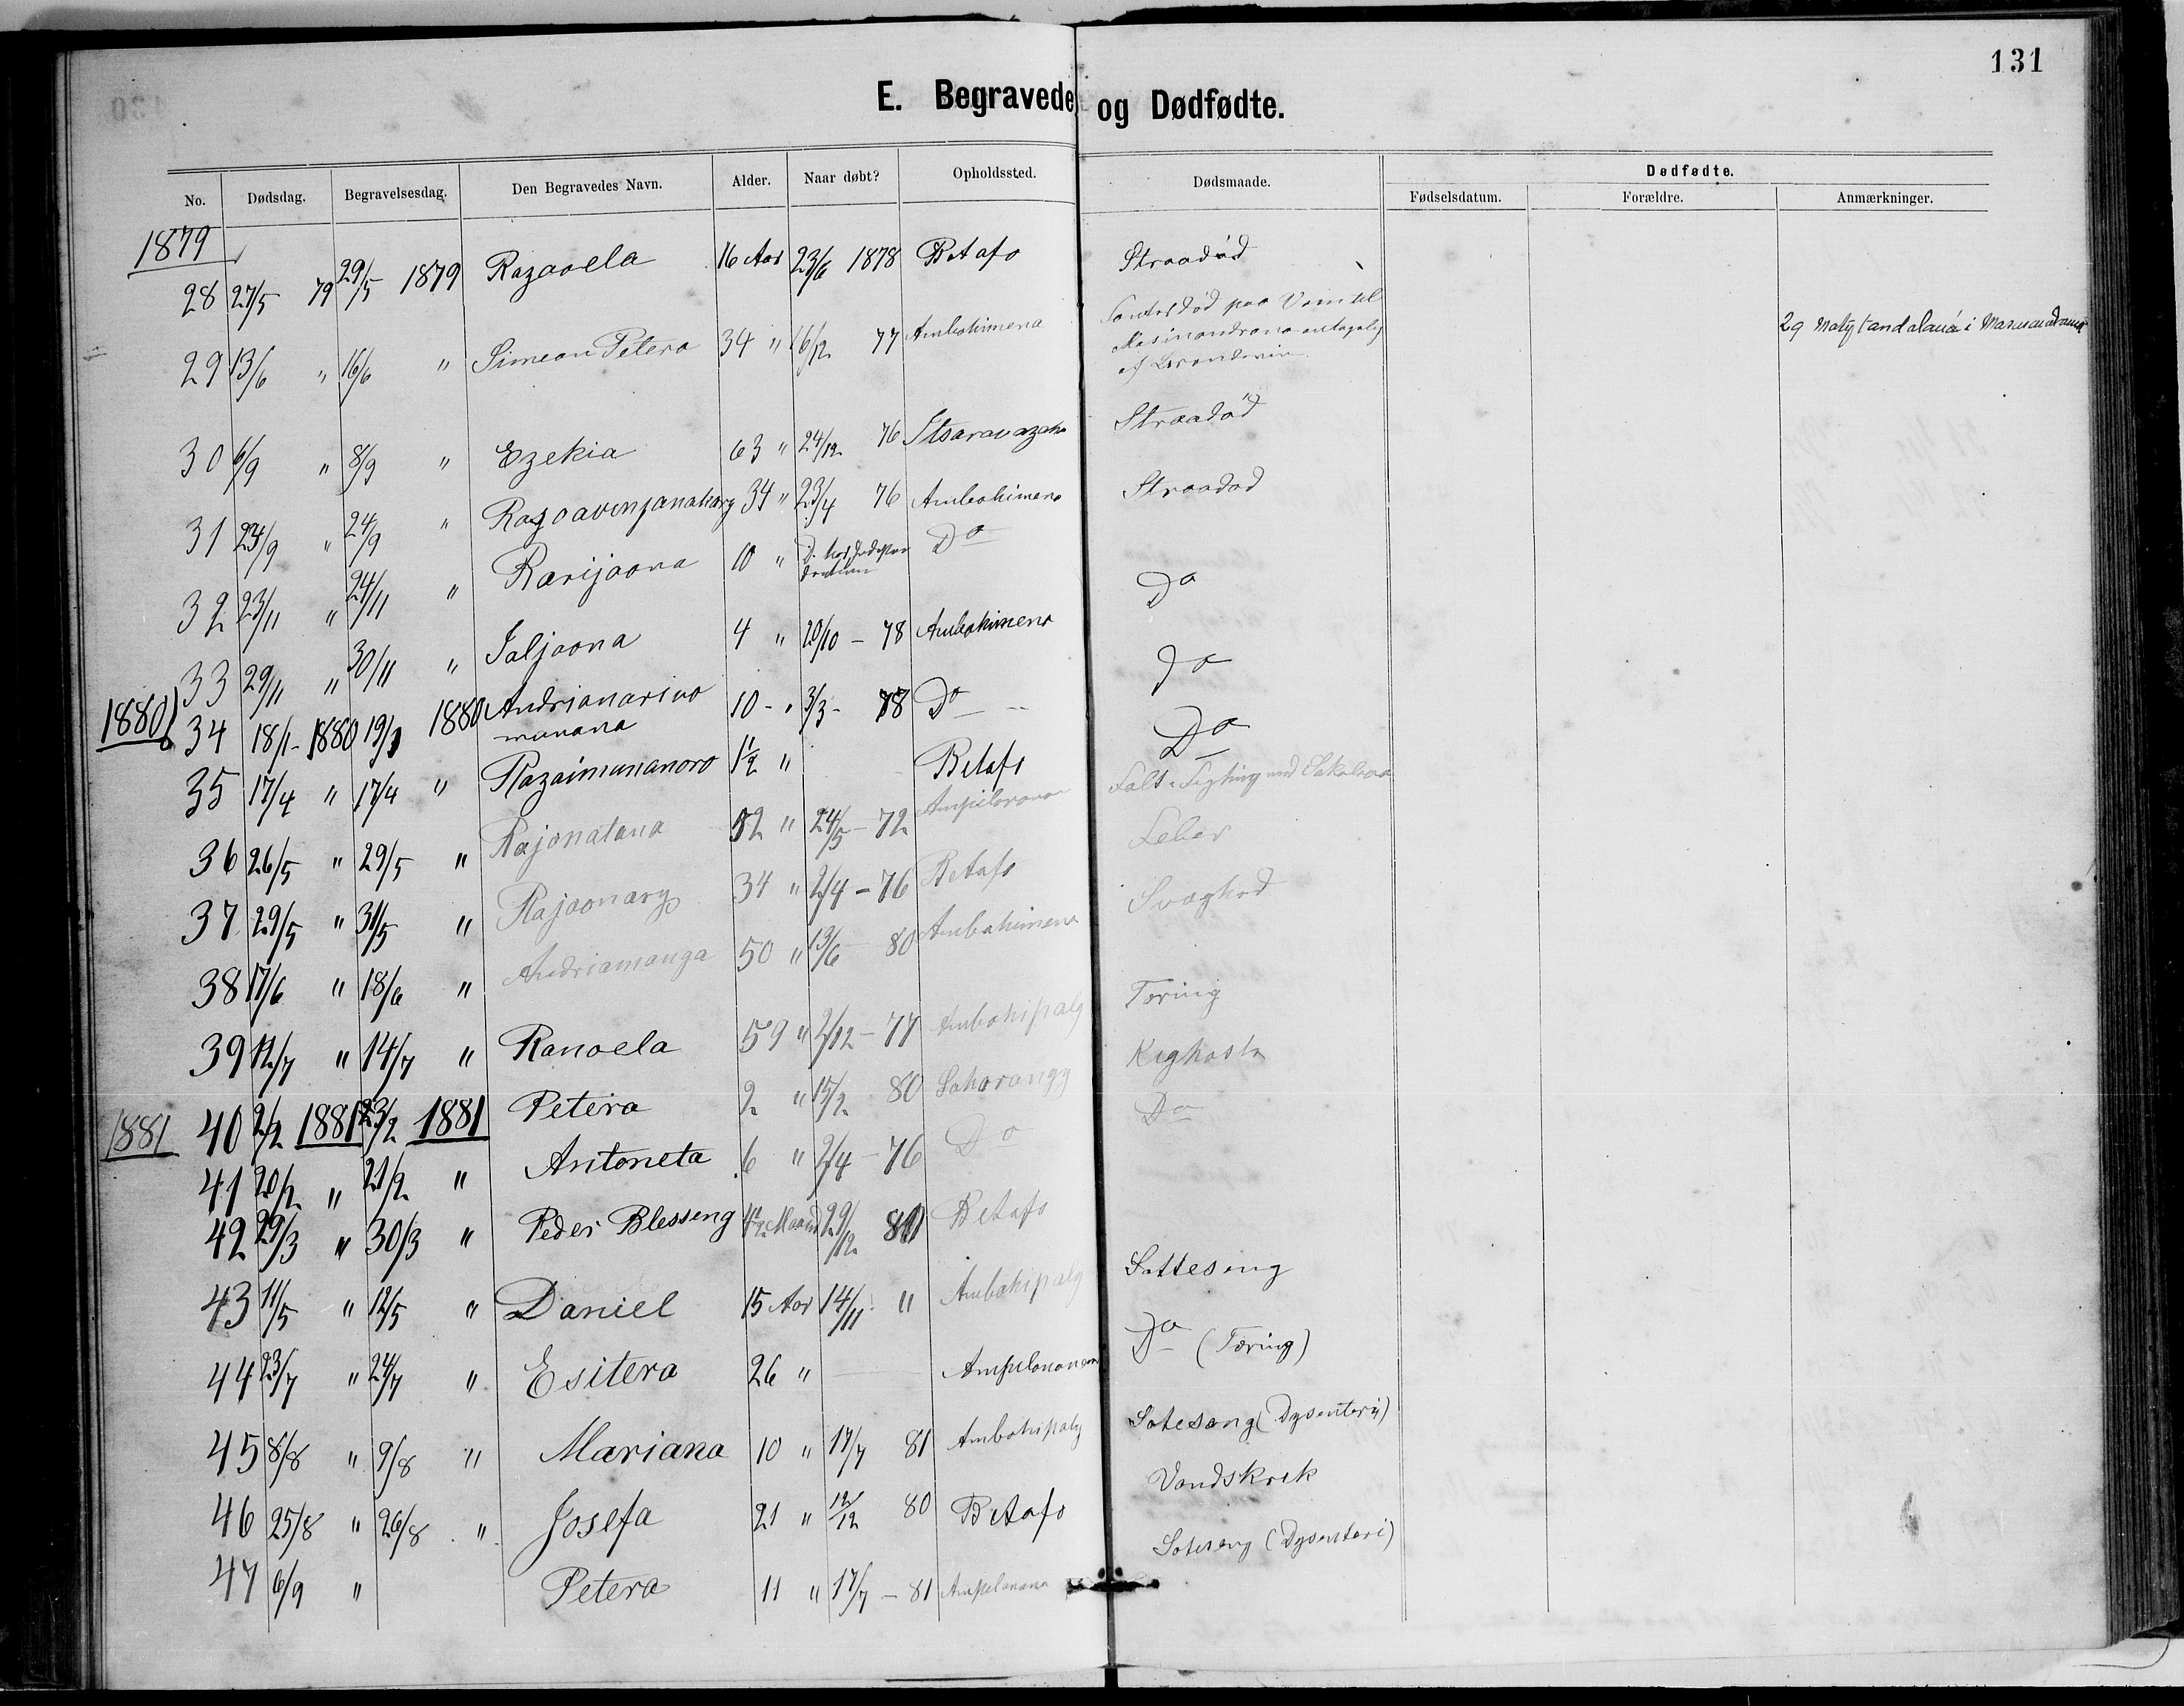 131
E. Begravede og Dødfødte.
No. Dødsdag. Begravelsesdag. Den Begravedes Navn. Alder. Naar døbt? Opholdssted. Dødsmaade. Dødfødte.
Fødselsdatum. Forældre. Anmærkninger.
1879
28 27/5 79 29/5 1879 Razaoela 16 Aar 23/6 1878 Betafo Straadød
29 13/6 " 16/6 " Simeon Petera 34 " 16/12 77 Ambohimena død paa Veien til
af
29 i
30 6/9 " 8/9 " Ezekia 63 " 24/12 76 Straadød
31 23/9 " 24/9 " 34 " 23/4 76 Ambohimena Straadød
32 23/11 " 24/11 " Rarijaona 10 " Do Do
33 29/11 " 30/11 " Jaljaona 4 " 20/10 - 78 Ambohimena Do
1880
34 18/1 - 1880 19/1 1880 Andrianarivo 10 - " 3/3 - 78 Do Do
manana
35 17/4 " 17/4 " Razaimananoro 1½ " Betafo
36 26/5 " 29/5 " Rajonatana 52 " 24/5 - 72 Falt i Fegtning med Sakalava
37 29/5 " 31/5 " Rajaonary 34 " 2/4 - 76 Betafo Feber
38 17/6 " 18/6 " Andriamanga 50 " 13/6 80 Ambohimena Svaghed
39 12/7 " 14/7 " Ranoela 59 " 2/12 - 77 Ambohipaly Tæring
1881
40 2/2 1881 23/2 1881 Petera 2 " 15/2 80 Kighoste
41 20/2 " 21/2 " Antoneta 6 " 2/4 - 76 Do Do
42 29/3 " 30/3 " Peder Blesseng 4½ Maaned 29/12 Betafo
43 11/5 " 12/5 " Daniel 15 Aar 14/11 " Ambohipaly Sotteseng
44 23/7 " 24/7 " Esitera 26 " Do (Tæring)
45 8/8 " 9/8 " Mariana 10 " 17/7 81 Ambohipaly Soteseng (Dysenteri)
46 25/8 " 26/8 " Josefa 21 " 12/12 80 Betafo Vandskrek
47 6/9 " Petera 11 " 17/7 - 81 Soteseng (Dysenteri)